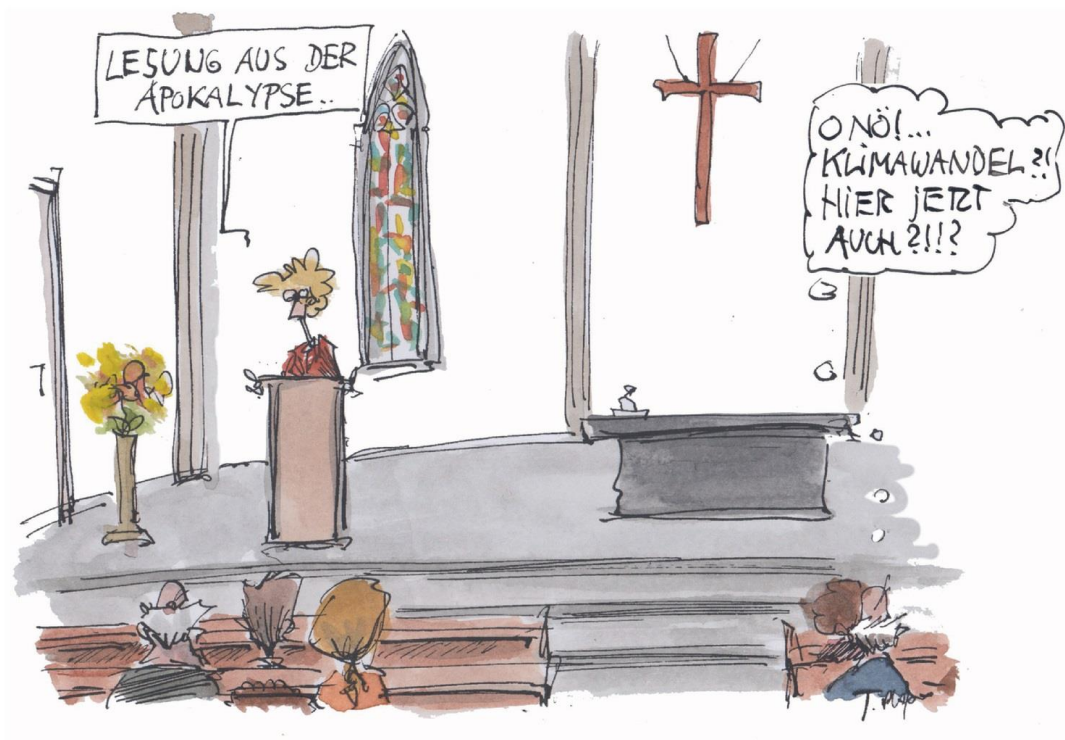 LESUNG AUS DER
APOKALYPSE..
O NÖ!...
KLIMAWANDEL?!
HIER JETZT
AUCH?!!?